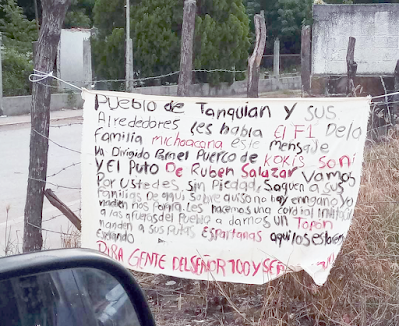 Pueblo de Tanquian y sus
Alrededores les habla El F1 Delo
familia michoacana este mensage
Va Dirigido Parael Puerco de KOKIS Soni
y El Puto De Ruben Salazar Vamos
Por Ustedes, Sin Piedad, Saquen a sus
familias De aqui Sobre auiso no hay engaño ya
nos les hacemos una cordial
a las afueras del Pueblo a darnos un Topón
manden a sus Putas Espartanas aqui los
Esperando
GENTE DEL SEÑOR 100 Y